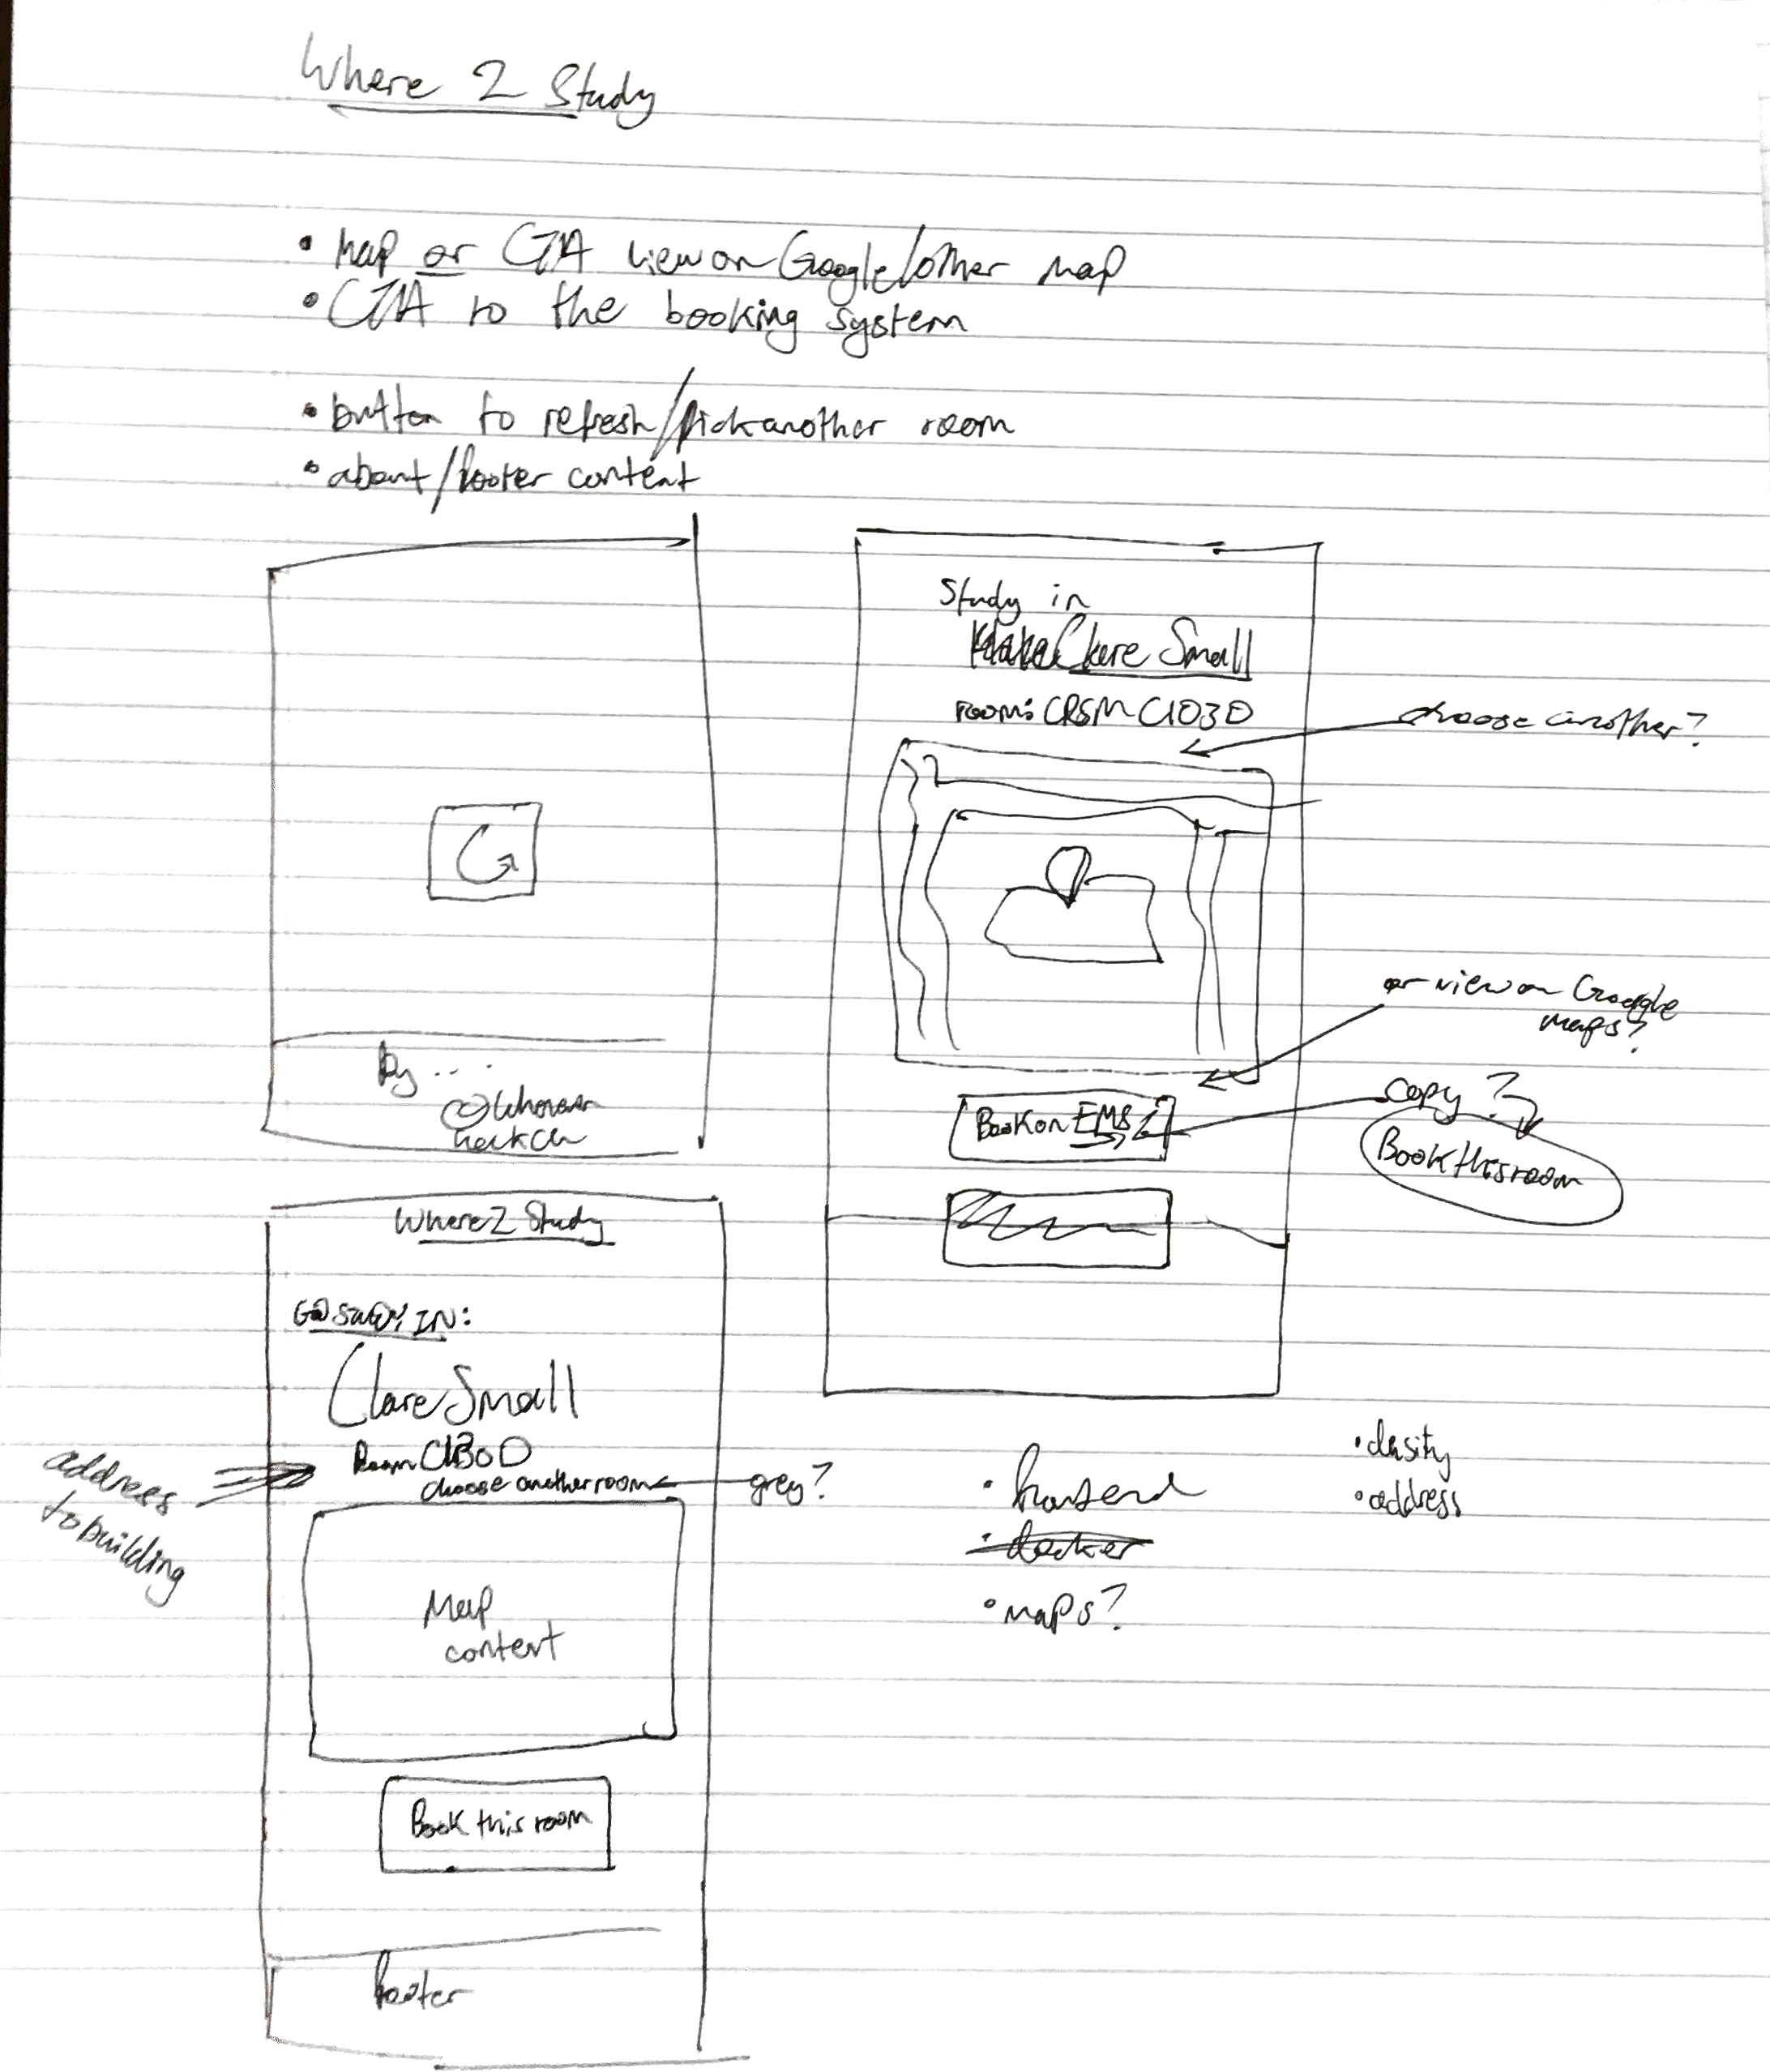 Where 2 Study
• map or CTA view on Google/other map
• CTA to the booking system
• button to refresh/pick another room
• about/footer content
By ....
@
Study in
Clare Small
room: CRSM C1030
choose another?
or view on Google
maps?
Book on EMS
copy?
Book this room
Where 2 Study
GO STUDY IN:
Clare Small
Room
choose another room
grey?
address
to building
Map
content
Book this room
footer
• frontend
• docker
• maps?
• density
• address